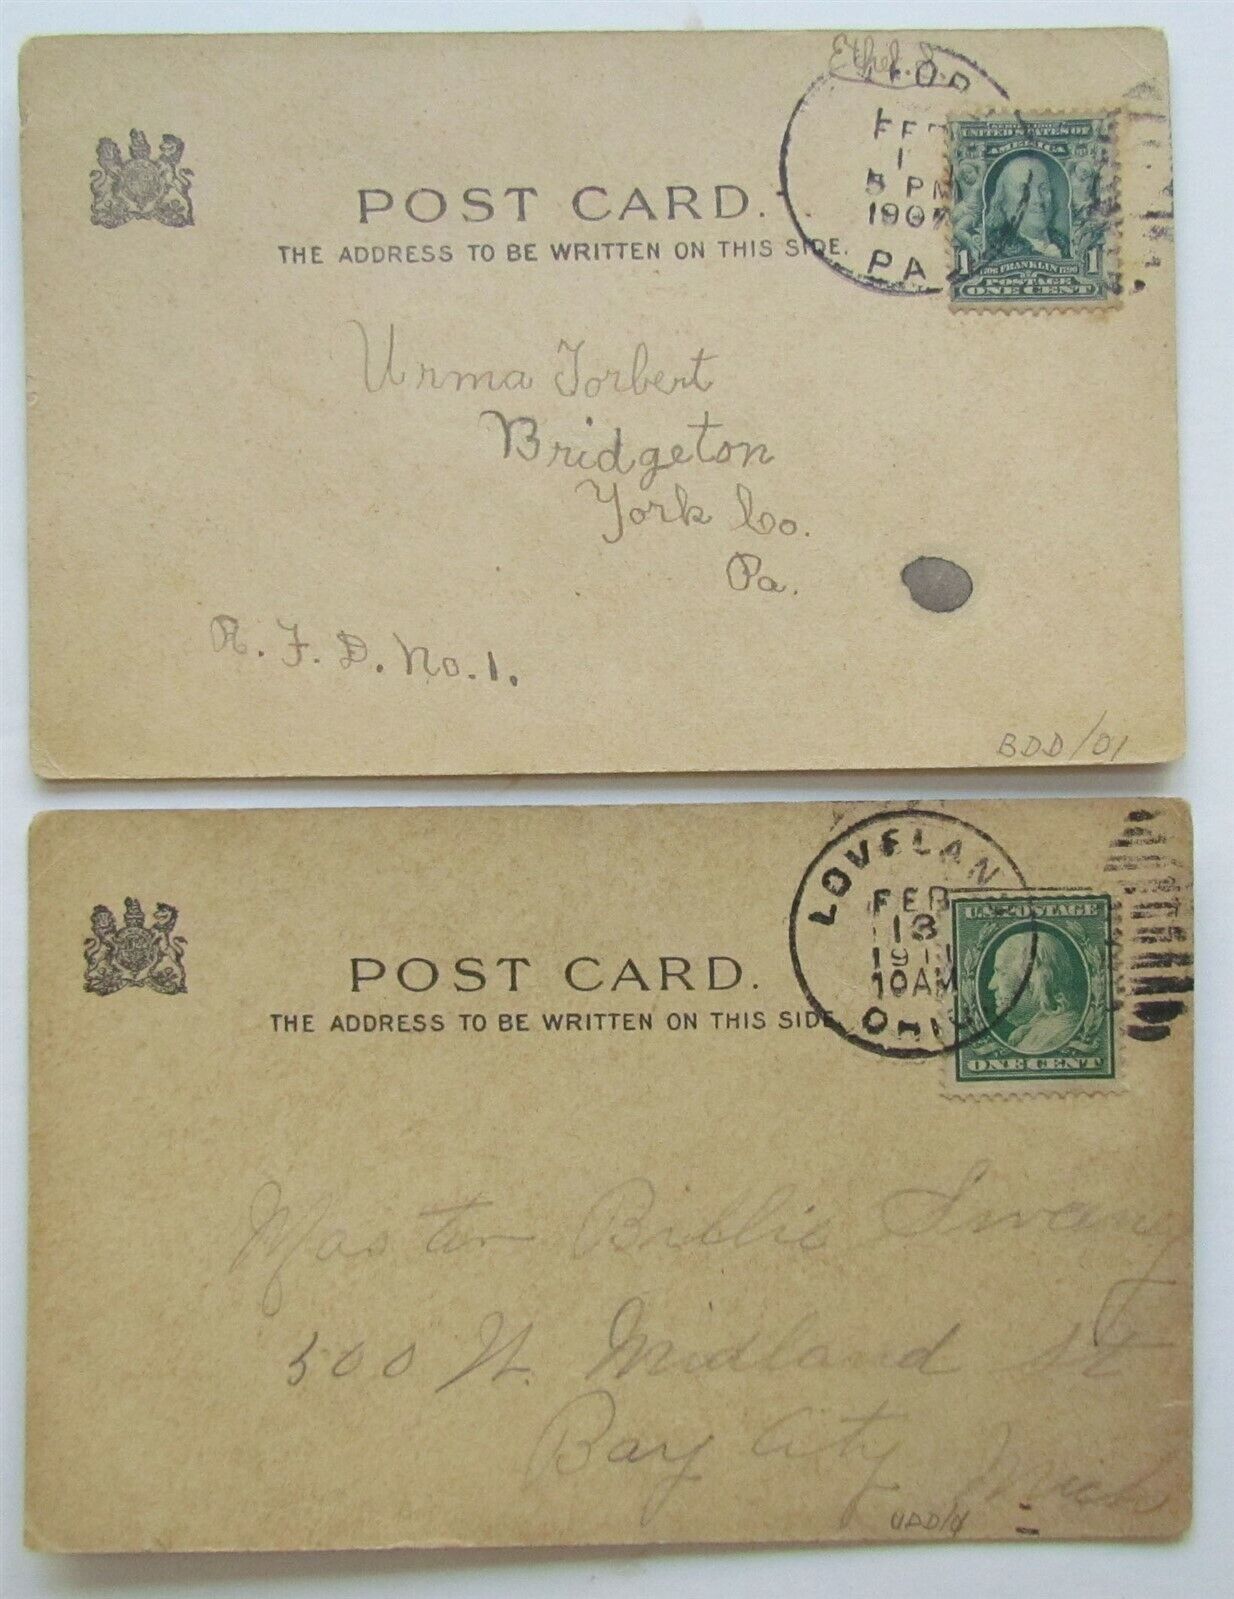 Ethel. S.
FEB
1
5 PM
1907
PA
SERIES 1902
UNITED STATES OF
AMERICA
1 1
1706 FRANKLIN 1790
POSTAGE
ONE CENT
POST CARD.
THE ADDRESS TO BE WRITTEN ON THIS SIDE.
Urma Torbert
Bridgeton
York Co.
Pa.
R. F. D. No. 1.
BDD/01
LOVELAN
FEB
13
1911
10 AM
OHIO
U.S. POSTAGE
ONE CENT
POST CARD.
THE ADDRESS TO BE WRITTEN ON THIS SIDE
Master Billie Swany
500 N. Midland St
Bay City
Mich